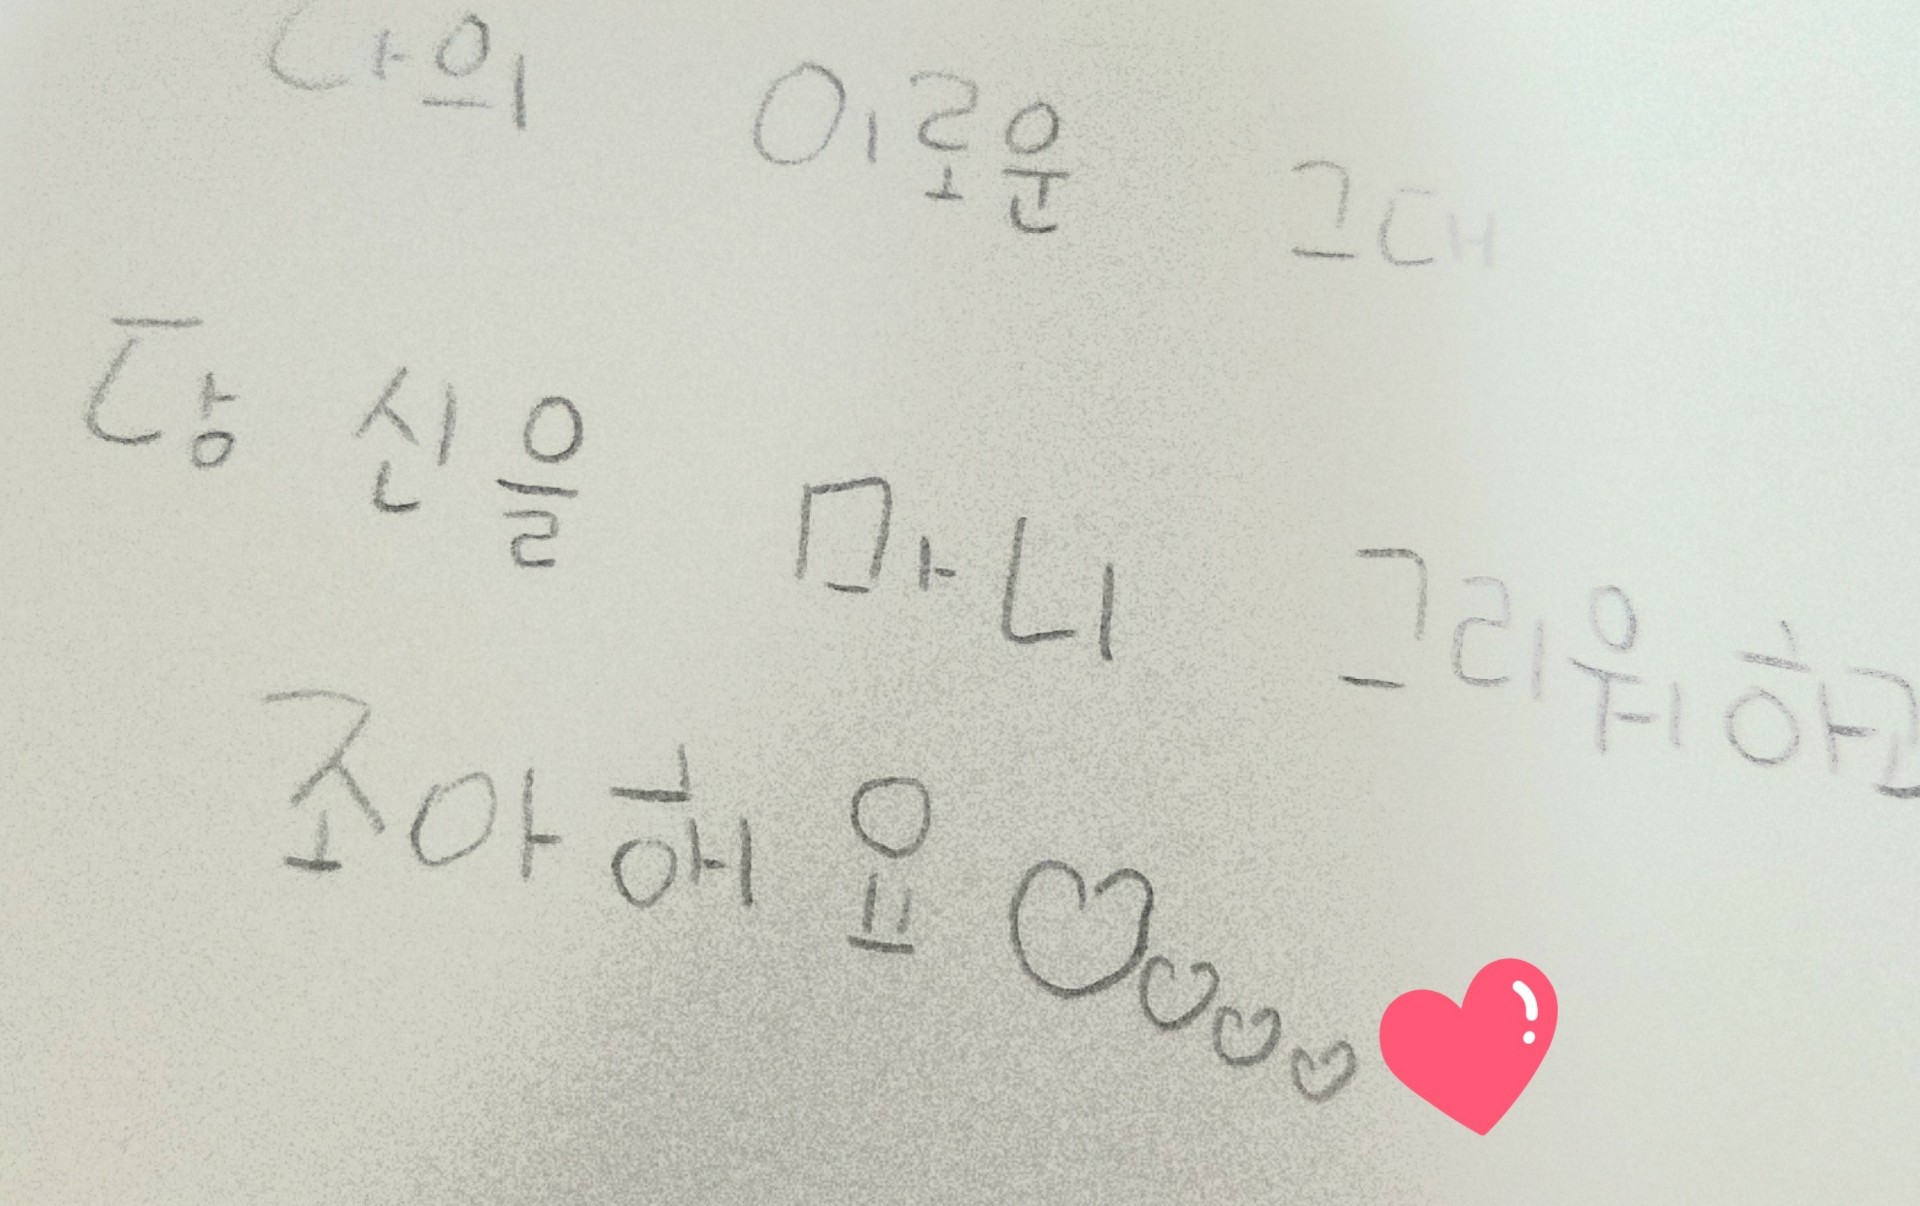 나의 이로운 그대
당신을 마니 그리워하고
조아해요